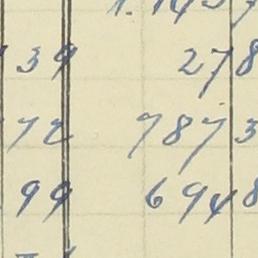 39 278
72 7873
99 6948